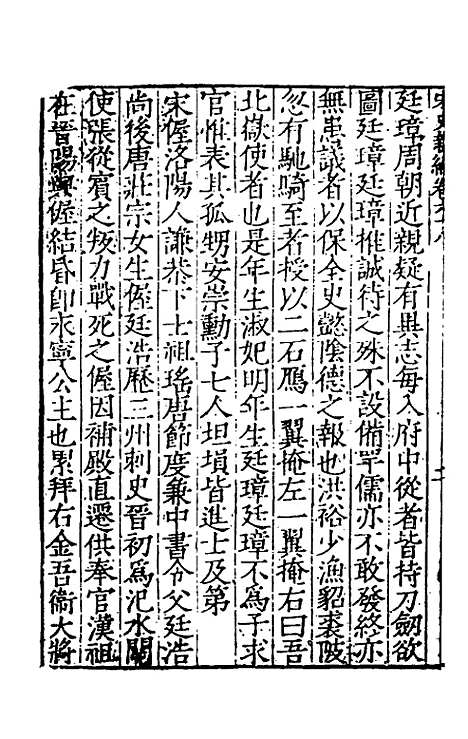 宋史新編卷六八 二
廷璋周朝近親疑有異志每入府中從者皆持刀劒欲
圖廷璋廷璋推誠待之殊不設備罕儒亦不敢發終亦
無患議者以保全史懿陰德之報也洪裕少漁貂裘陂
忽有馳騎至者授以二石鴈一翼掩左一翼掩右曰吾
北嶽使者也是年生淑妃明年生廷璋廷璋不爲子求
官惟表其孤甥安崇勳子七人坦塤皆進士及第
宋偓洛陽人謙恭下士祖瑤唐節度兼中書令父廷浩
尚後唐莊宗女生偓廷浩歷三州刺史晉初爲汜水關
使張從賓之叛力戰死之偓因補殿直遷供奉官漢祖
在晉陽與偓結昏即永寧公主也累拜右金吾衞大將